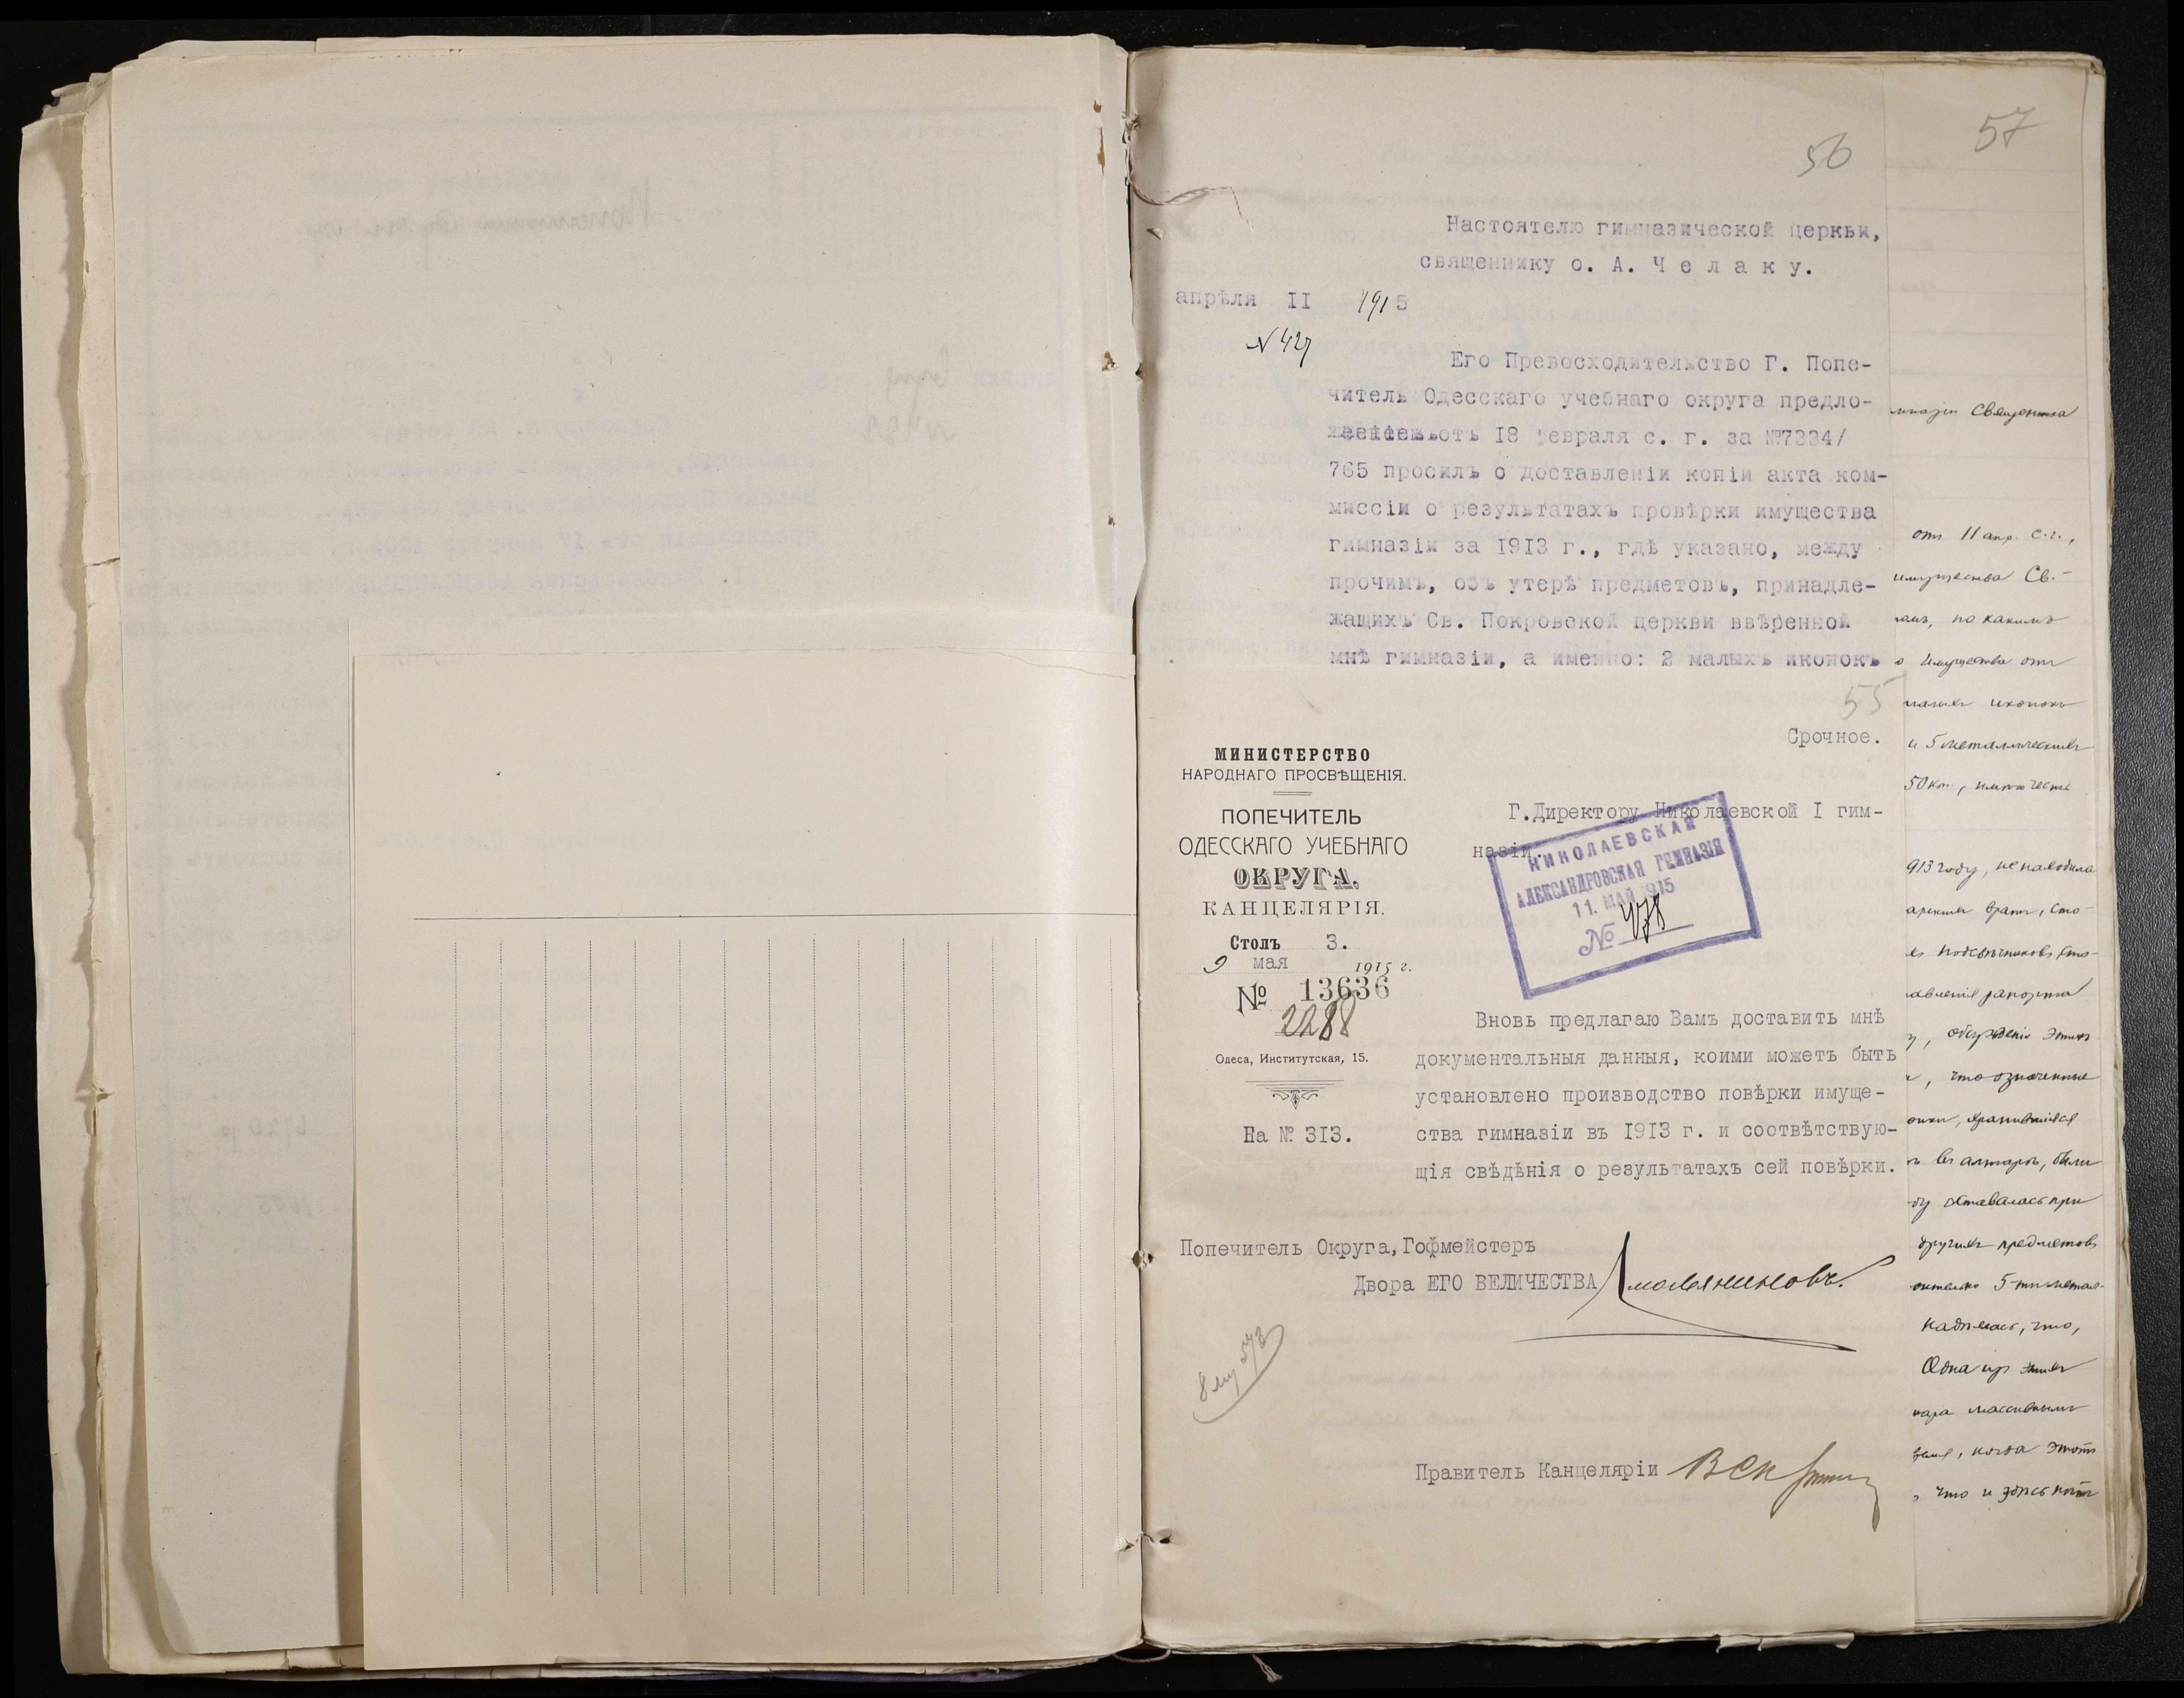 56
Настоятелю гимназической церкви,
священнику о. А. Челаку.
апрѣля II 1915
№ 427
Его Превосходительство Г. Попе-
читель Одесскаго учебнаго округа предло-
отъ 18 февраля с. г. за №7334/
765 просилъ о доставленіи копіи акта ком-
миссіи о результатахъ провѣрки имущества
гимназіи за 1913 г., гдѣ указано, между
прочимъ, объ утерѣ предметовъ, принадле-
жащихъ Св. Покровской церкви ввѣренной
мнѣ гимназіи, а именно: 2 малыхъ иконокъ
55
Срочное.
МИНИСТЕРСТВО
НАРОДНАГО ПРОСВѢЩЕНІЯ.
ПОПЕЧИТЕЛЬ
ОДЕССКАГО УЧЕБНАГО
ОКРУГА.
КАНЦЕЛЯРІЯ.
Столъ 3.
9 мая 1915 г.
№ 13636
2288
Одеса, Институтская, 15.
На № 313.
Г.Директору Николаевской I гим-
назіи.
НИКОЛАЕВСКАЯ
АЛЕКСАНДРОВСКАЯ ГИМНАЗІЯ
11. МАЙ 1915
№ 478
Вновь предлагаю Вамъ доставить мнѣ
документальныя данныя, коими можетъ быть
установлено производство повѣрки имуще-
ства гимназіи въ 1913 г. и соотвѣтствую-
щія свѣдѣнія о результатахъ сей повѣрки.
Попечитель Округа, Гофмейстеръ
Двора ЕГО ВЕЛИЧЕСТВА Смольяниновъ.
Правитель Канцеляріи
57
Священника
отъ 11 апр. с.г.,
имущества Св.-
по какимъ
имущества отъ
иконокъ
и 5 металлическихъ
50 коп.,
913 году, не находила
вратъ, сто-
подсвѣчниковъ, сто-
рапорта
обсужденія этихъ
что означенные
въ алтарѣ, были
оставалась при
другихъ предметовъ
5-ти метал-
надѣясь, что,
Одна изъ этихъ
массивнымъ
когда этотъ
что и здѣсь